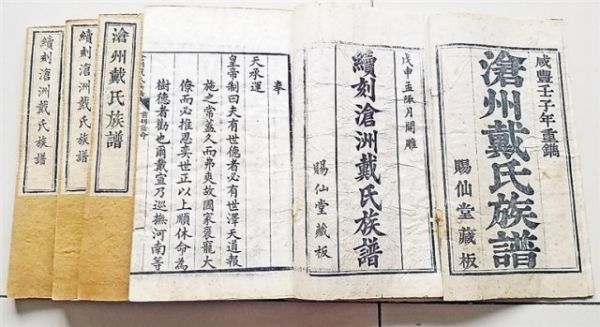 咸豐壬子年重鐫
滄州戴氏族譜
賜仙堂藏板
戊申孟陬月開雕
續刻滄洲戴氏族譜
賜仙堂藏板
奉
天承運
皇帝制曰夫有世德者必有世澤天道報
施之常蓋久而弗爽故國家襃寵大
僚而必推恩奕世正以上順休命為
樹德者勸也爾戴宣乃巡撫河南等
滄州戴氏族譜
續刻滄洲戴氏族譜
續刻滄洲戴氏族譜